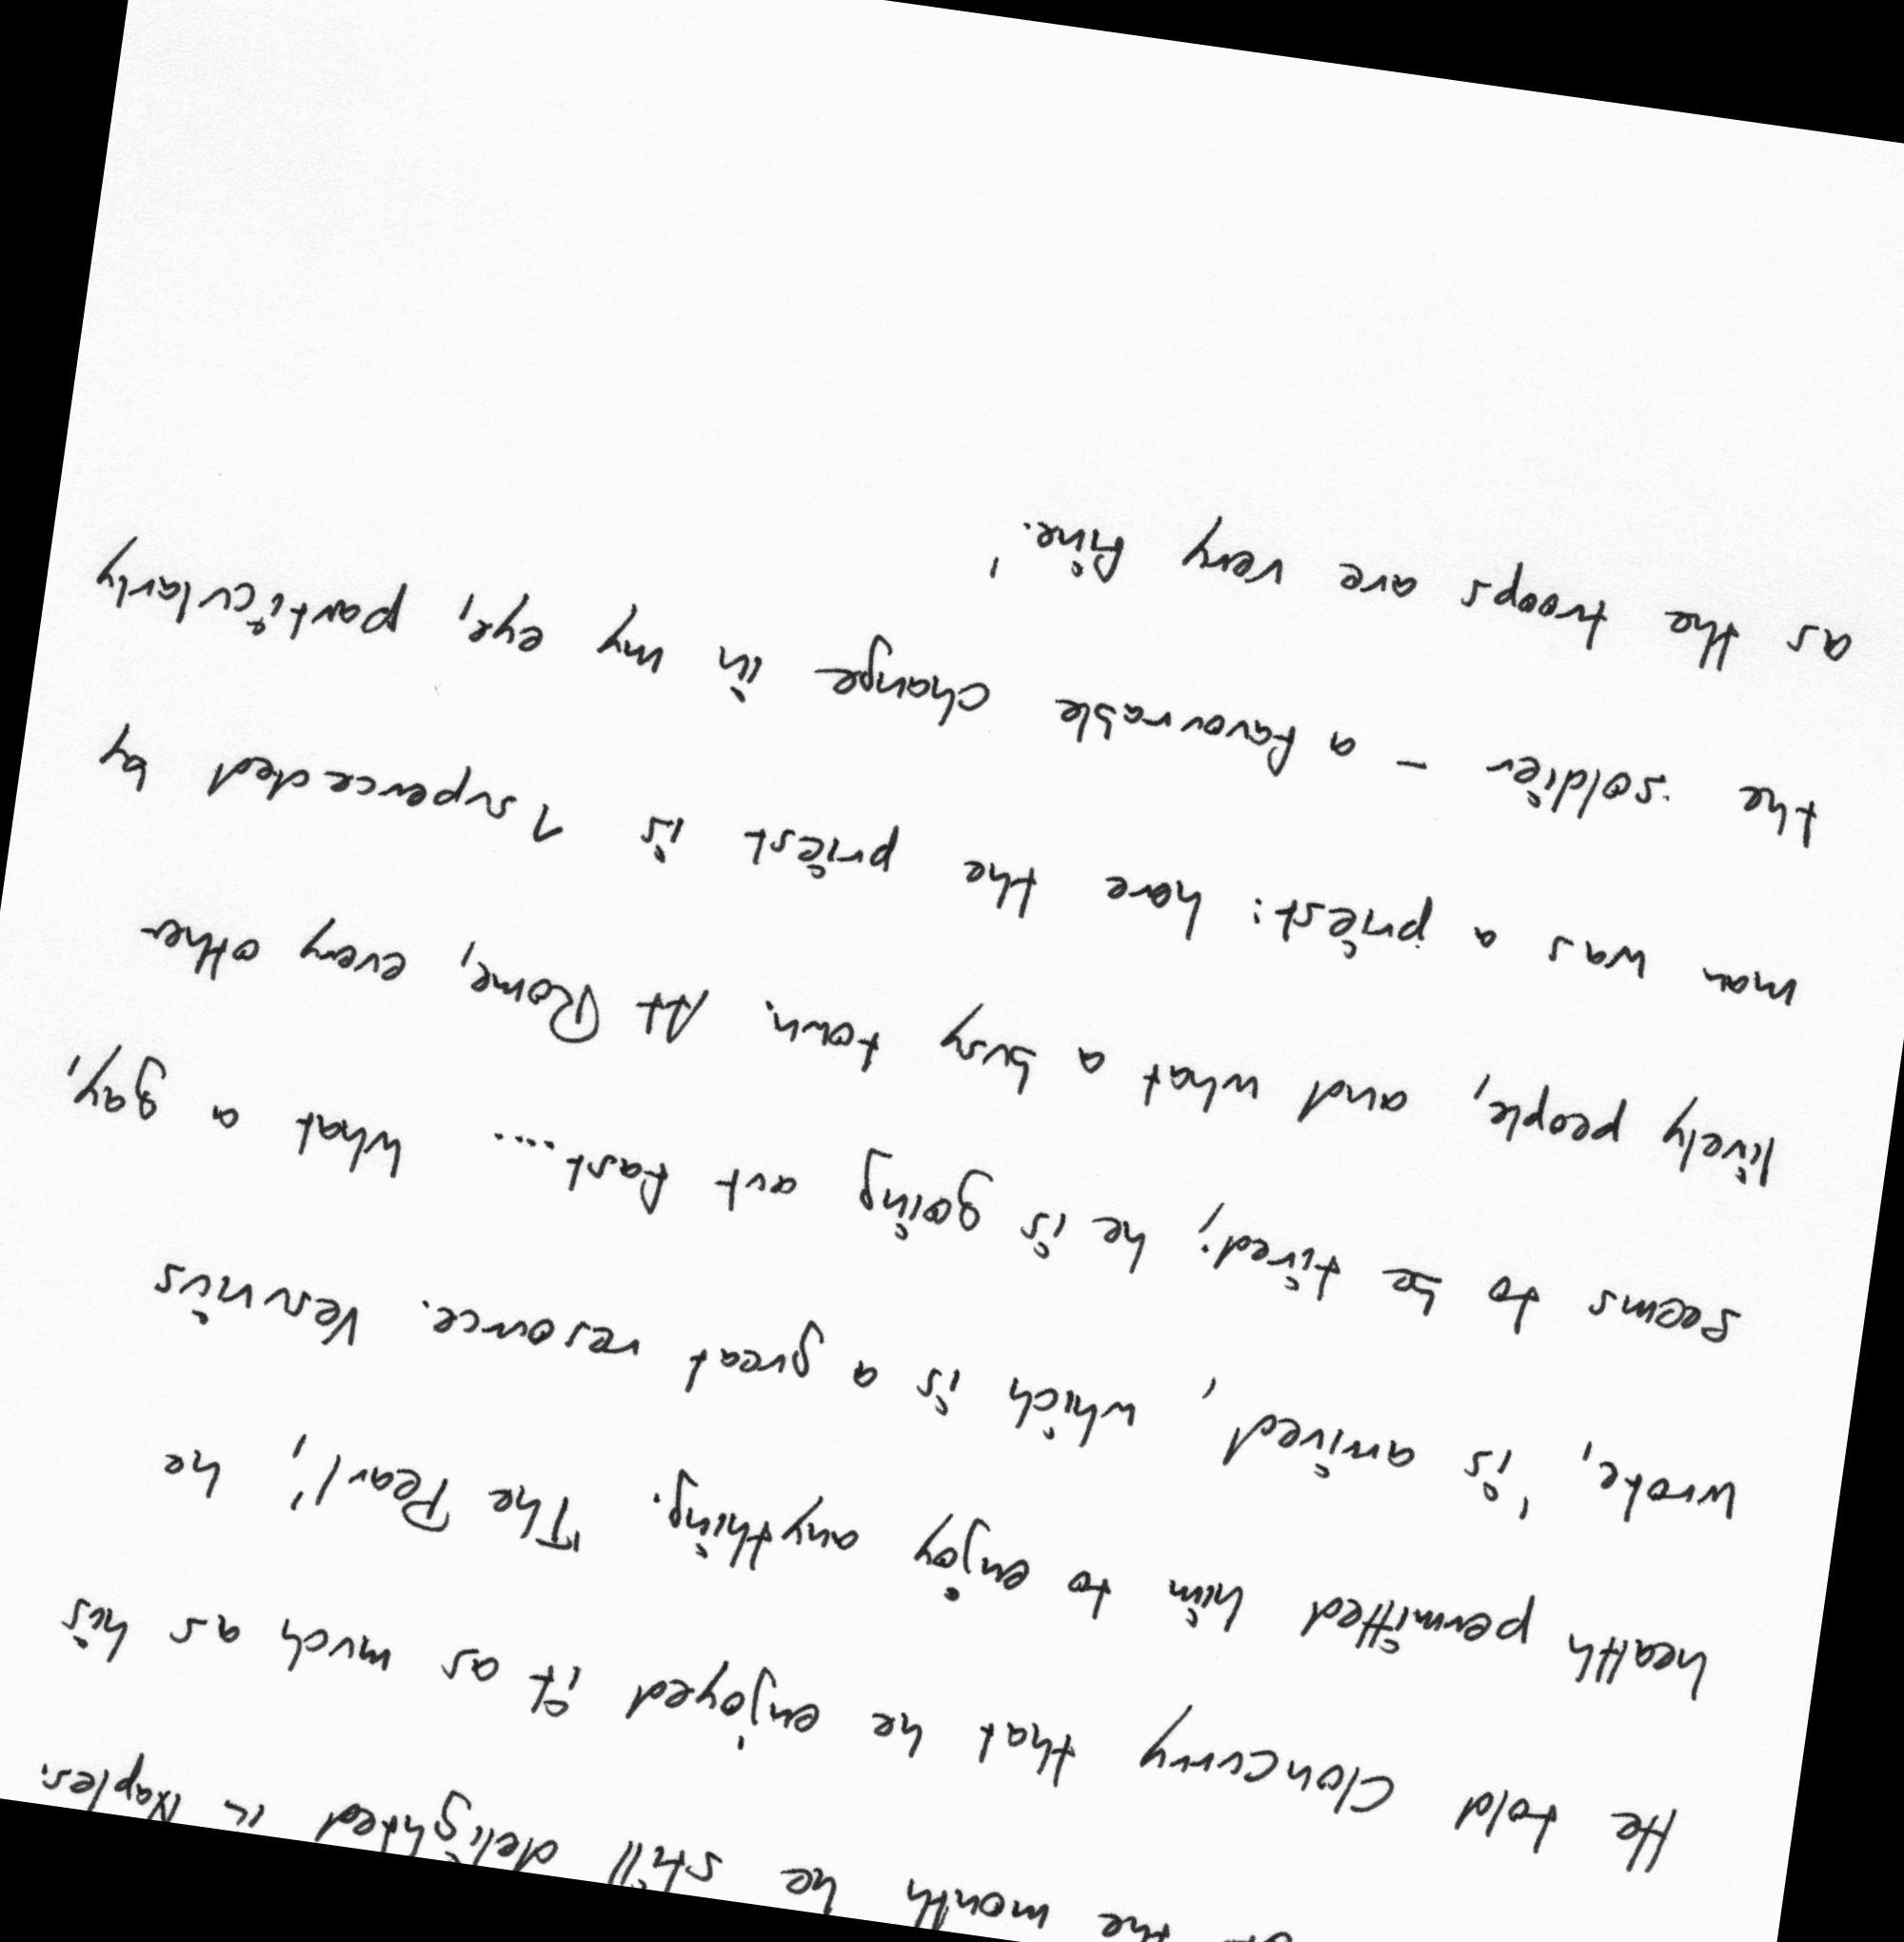 the month he still delighted in Naples.
He told Cloncurry that he enjoyed it as much as his
health permitted him to enjoy anything. 'The Pearl', he
wrote, 'is arrived, which is a great resource. Vesuvius
seems to be tired; he is going out fast.... What a gay,
lively people, and what a busy town. At Rome, every other
man was a priest: here the priest is superceded by
the soldier - a favourable change in my eye, particularly
as the troops are very fine.'